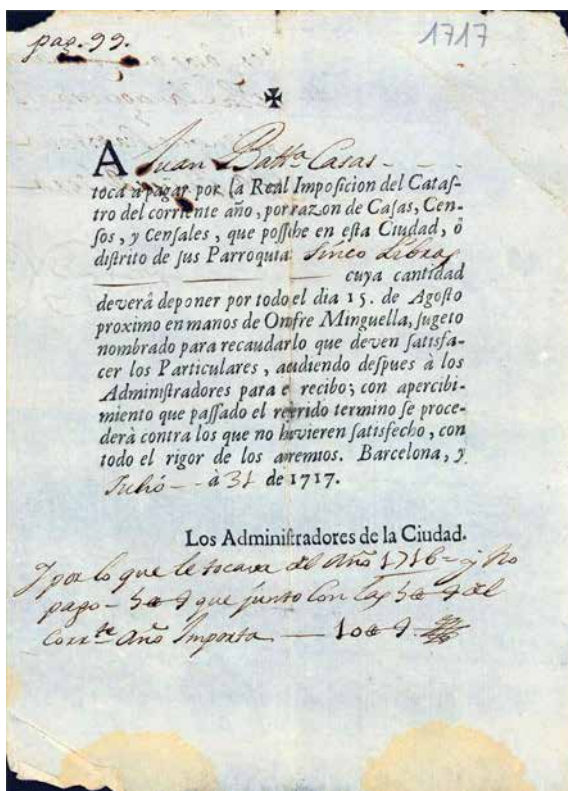 pag. 99.
1717
✠
A Juan Batt.ª Casas - - -
toca à pagar por la Real Imposicion del Cataſ-
tro del corriente año, por razon de Caſas, Cen-
ſos, y Cenſales, que poſſehe en eſta Ciudad, ô
diſtrito de ſus Parroquia. sinco Libras
cuya cantidad
deverâ deponer por todo el dia 15. de Agoſto
proximo en manos de Onofre Minguella, ſugeto
nombrado para recaudarlo que deven ſatisfa-
cer los Particulares, acudiendo deſpues à los
Adminiſtradores para el recibo; con apercibi-
miento que paſſado el referido termino ſe proce-
derà contra los que no huvieren ſatisfecho, con
todo el rigor de los apremios. Barcelona, y
Julió — à 31 de 1717.
Los Adminiſtradores de la Ciudad.
Y por lo que le tocava del Año 1716 - y No
pago - 5 que junto Con las 5 del
Corr.te Año Importa — 10